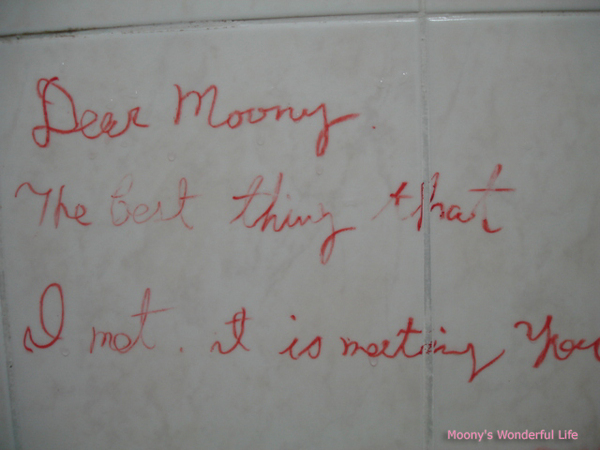 Dear Moony.
The best thing that
I met. it is meeting You
Moony's Wonderful Life